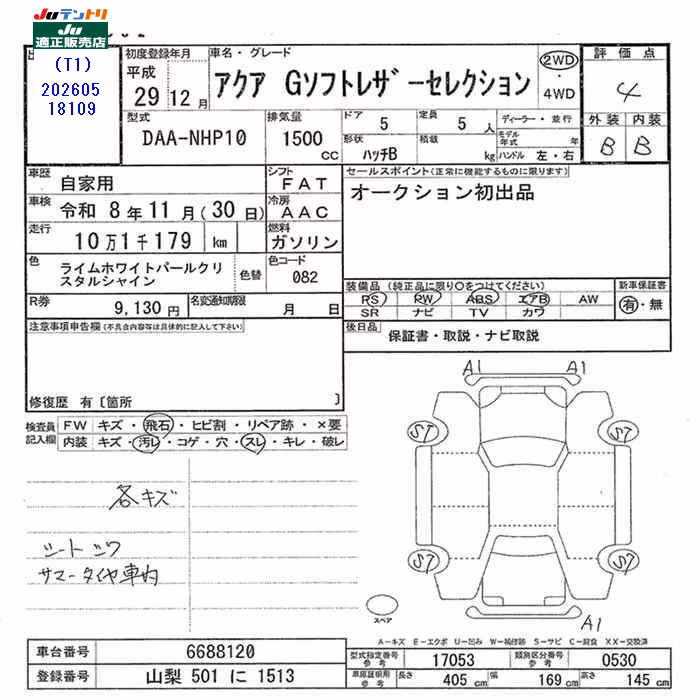 JUテントリ
JU
適正販売店
(T1)
202605
18109
初度登録年月
平成
29 12 月
車名・グレード
アクア Gソフトレザーセレクション
2WD
・
4WD
評価点
4
外装 内装
B B
型式
DAA-NHP10
排気量
1500
cc
ドア 5
定員 5 人
形状 ハッチB
積載 kg
ディーラー・並行
モデル年式 年
ハンドル 左・右
車歴 自家用
シフト FAT
車検 令和 8 年 11 月 (30 日)
冷房 AAC
走行 10 万 1 千 179 km
燃料 ガソリン
色 ライムホワイトパールクリスタルシャイン
色替
色コード 082
R券 9,130 円
名変通知期限 月 日
セールスポイント(正常に機能するものに限ります)
オークション初出品
装備品 (純正品に限り○をつけてください)
PS PW ABS エアB AW
SR ナビ TV カワ
新車保証書
有・無
後日品 保証書・取説・ナビ取説
注意事項申告欄(不具合内容等は具体的に記入して下さい)
修復歴 有〔箇所 〕
検査員記入欄
FW キズ・飛石・ヒビ割・リペア跡・×要
内装 キズ・汚レ・コゲ・穴・スレ・キレ・破レ
各キズ
シートシワ
サマータイヤ車内
A1 A1
S7 S7
S7 S7
A1
スペア
A-キズ E-エクボ U-凹み W-補修跡 S-サビ C-腐食 XX-交換済
車台番号 6688120
登録番号 山梨 501 に 1513
型式指定番号 参考 17053
類別区分番号 参考 0530
車庫証明用 参考 長さ 405 cm 幅 169 cm 高さ 145 cm